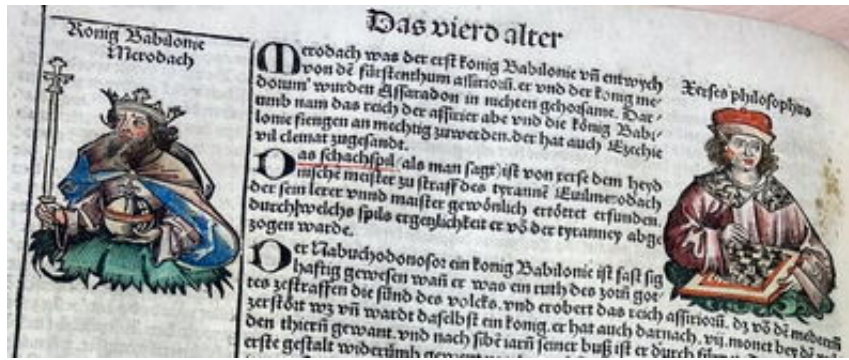 Das vierd alter
König Babilonie
Merodach
Merodach was der erst konig Babilonie vñ entwych
von dē fürstenthum assirioꝝ. er vnd der konig me-
dorum wurden Assaradon in nichten gehorsame. Dar-
umb nam das reich der assirier abe vnd die könig Babi-
lonie fiengen an mechtig zuwerden. der hat auch Ezechie
vil clemat zugesandt.
Xerses philosophus
Das schachspil (als man sagt) ist von xerse dem heyd
nische meister zu straff des tyrannē Euilmerodach
der sein lerer vnnd maister gewönlich ertöttet erfunden.
durch welchs spils ergetzlichkeit er vō der tyranney abge
zogen warde.
Der Nabuchodonosor ein konig Babilonie ist fast sig
haftig gewesen wañ er was ein ruth des zorñ got-
tes zestraffen die sünd des volcks. vnd erobert das reich assirioꝝ. dz vō dē medern
zerstört wz vñ wardt daselbst ein konig. er hat auch darnach. vij. monet bey dē
den thierñ gewant. vnd nach sibē iarñ seiner buß ist er durch
erste gestalt widerumb